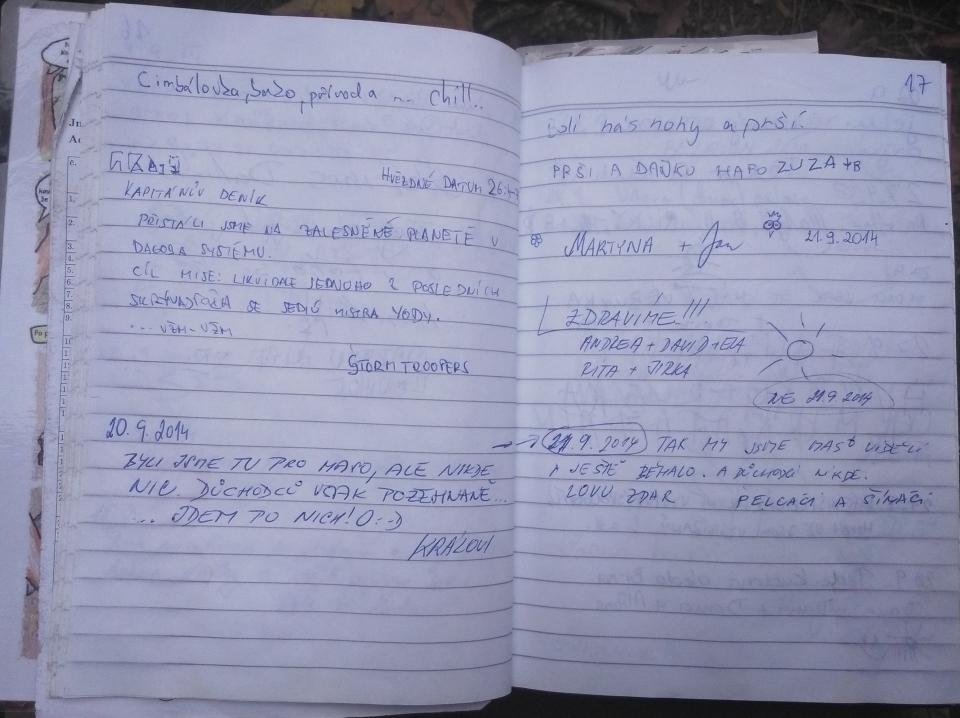 Cimbálovka, bažo, příroda ... chill...
HVĚZDNÉ DATUM 26
KAPITÁNŮV DENÍK
PŘISTÁLI JSME NA ZALESNĚNÉ PLANETĚ V
DAGOBA SYSTÉMU.
CÍL MISE: LIKVIDACE JEDNOHO Z POSLEDNÍCH
SE JEDIŮ MISTRA YODY.
... VŽM-VŽM
STORMTROOPERS
20.9.2014
BYLI JSME TU PRO MAPO, ALE NIKDE
NIC. DŮCHODCŮ VŠAK POŽEHNANĚ...
... JDEM PO NICH! O:-)
KRÁLOVI
17
bolí nás nohy a prší.
PRŠÍ A DAŇKU MAPO ZUZA +B
MARTYNA + Jan 21.9.2014
ZDRAVÍME!!!
ANDREA + DAVID + ELA
RITA + JIRKA
NE 21.9.2014
→ 21.9.2014 TAK MY JSME MAPO VIDĚLI
A JEŠTĚ BĚHALO. A DŮCHODCI NIKDE.
LOVU ZDAR PELCÁČI A